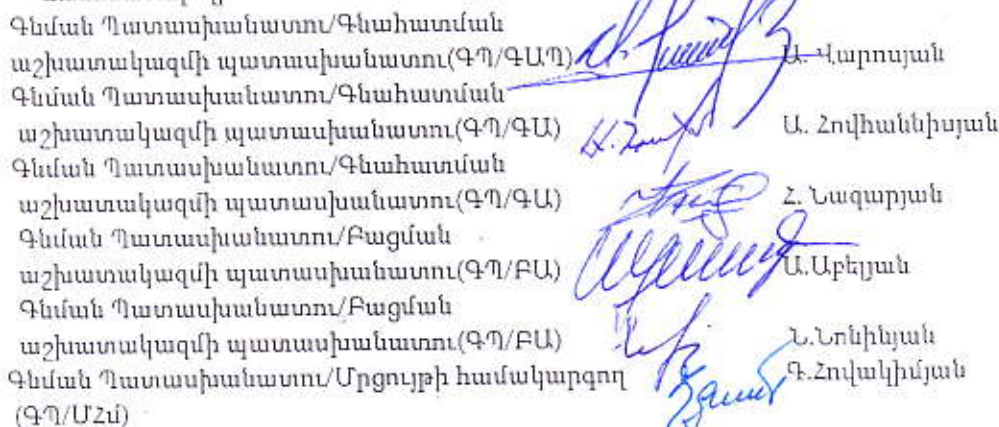 Գնման Պատասխանատու/Գնահատման
աշխատակազմի պատասխանատու(ԳՊ/ԳԱՊ) Ա. Վարոսյան
Գնման Պատասխանատու/Գնահատման
աշխատակազմի պատասխանատու(ԳՊ/ԳԱ) Ա. Հովհաննիսյան
Գնման Պատասխանատու/Գնահատման
աշխատակազմի պատասխանատու(ԳՊ/ԳԱ) Հ. Նազարյան
Գնման Պատասխանատու/Բացման
աշխատակազմի պատասխանատու(ԳՊ/ԲԱ) Ա.Աբելյան
Գնման Պատասխանատու/Բացման
աշխատակազմի պատասխանատու(ԳՊ/ԲԱ) Ն.Նոնինյան
Գնման Պատասխանատու/Մրցույթի համակարգող Գ.Հովակիմյան
(ԳՊ/ՄՀմ)